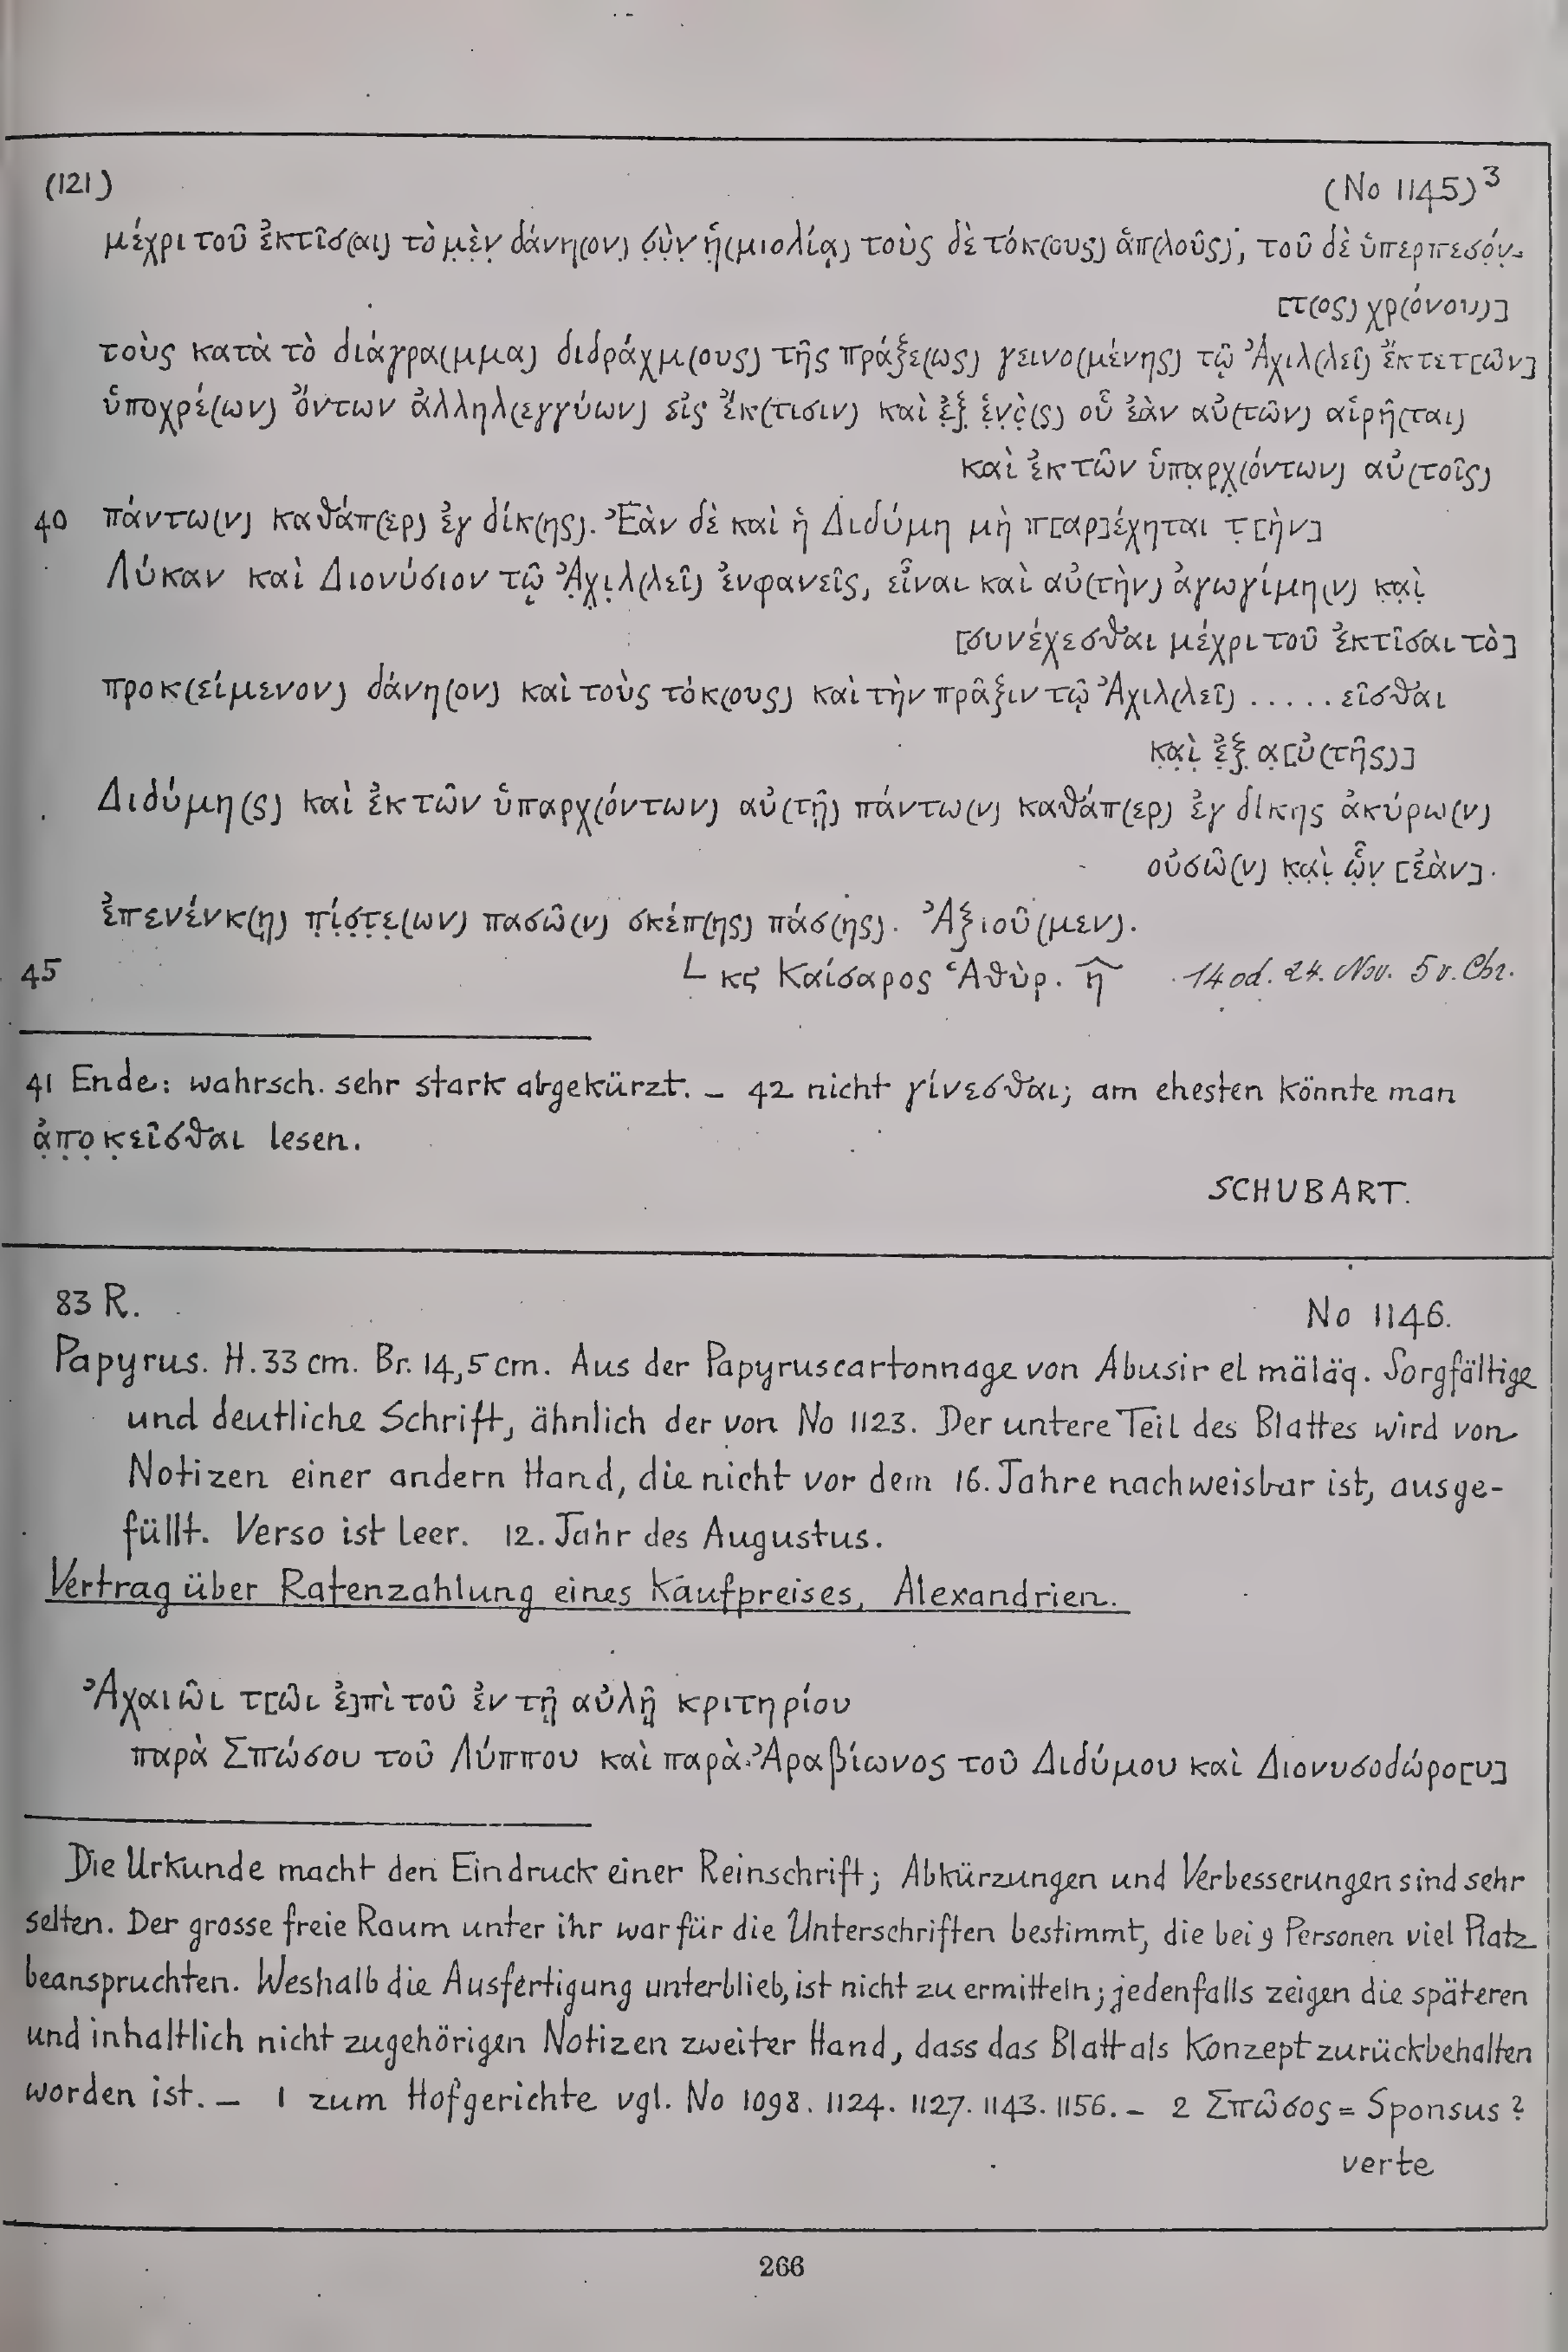 (121) (No 1145)³
μέχρι τοῦ ἐκτῖσ(αι) τὸ μ̣ὲ̣ν̣ δάνη(ον̣) σ̣ὺ̣ν̣ ἡ̣(μιολίᾳ) τοὺς δὲ τόκ(ους) ἁπ(λοῦς), τοῦ δὲ ὑπερπεσό̣ν̣-
[τ(ος) χρ(όνου)]
τοὺς κατὰ τὸ διάγρα(μμα) διδράχμ(ους) τῆς πράξε(ως) γεινο(μένης) τῷ Ἀχιλ(λεῖ) ἔκτετ[ῶν]
ὑποχρέ(ων) ὄντων ἀλληλ(εγγύων) εἰς ἔκ(τισιν) καὶ ἐ̣ξ̣ ἑ̣ν̣ὸ̣(ς) οὗ ἐὰν αὐ(τῶν) αἱρῆ(ται)
καὶ ἐκ τῶν ὑπα̣ρχ̣(όντων) αὐ(τοῖς)
40 πάντω(ν) καθάπ(ερ) ἐγ δίκ(ης). Ἐὰν δὲ καὶ ἡ Διδύμη μὴ π[αρ]έχηται τ̣[ὴν]
Λύκαν καὶ Διονύσιον τῷ Ἀ̣χ̣ι̣λ(λεῖ) ἐνφανεῖς, εἶναι καὶ αὐ(τὴν) ἀγωγίμη(ν) κ̣α̣ὶ̣
[συνέχεσθαι μέχρι τοῦ ἐκτῖσαι τὸ]
προκ(είμενον) δάνη(ον) καὶ τοὺς τόκ(ους) καὶ τὴν πρᾶξιν τῷ Ἀχιλ(λεῖ) . . . . . εῖσθαι
κ̣α̣ὶ̣ ἐ̣ξ̣ α̣[ὐ(τῆς)]
Διδύμη(ς) καὶ ἐκ τῶν ὑπαρχ(όντων) αὐ(τῇ) πάντω(ν) καθάπ(ερ) ἐγ δίκης ἀκύρω(ν)
οὐσῶ(ν) κ̣α̣ὶ̣ ὧ̣ν̣ [ἐὰν].
ἐπενένκ(ῃ) π̣ί̣σ̣τ̣ε̣(ων) πασῶ(ν) σκέπ(ης) πάσ(ης). Ἀξιοῦ(μεν).
45 L κϛ Καίσαρος Ἁθὺρ. η̂ 14 od. 24. Nov. 5 v. Chr.
41 Ende: wahrsch. sehr stark abgekürzt. – 42 nicht γίνεσθαι; am ehesten könnte man
ἀ̣π̣ο̣κ̣εῖσθαι lesen.
SCHUBART.
83 R. No 1146.
Papyrus. H. 33 cm. Br. 14,5 cm. Aus der Papyruscartonnage von Abusir el mäläq. Sorgfältige
und deutliche Schrift, ähnlich der von No 1123. Der untere Teil des Blattes wird von
Notizen einer andern Hand, die nicht vor dem 16. Jahre nachweisbar ist, ausge-
füllt. Verso ist leer. 12. Jahr des Augustus.
Vertrag über Ratenzahlung eines Kaufpreises, Alexandrien.
Ἀχαιῶι τ[ῶι ἐ]πὶ τοῦ ἐν τῇ αὐλῇ κριτηρίου
παρὰ Σπώσου τοῦ Λύππου καὶ παρὰ Ἀραβίωνος τοῦ Διδύμου καὶ Διονυσοδώρο[υ]
Die Urkunde macht den Eindruck einer Reinschrift; Abkürzungen und Verbesserungen sind sehr
selten. Der grosse freie Raum unter ihr war für die Unterschriften bestimmt, die bei 9 Personen viel Platz
beanspruchten. Weshalb die Ausfertigung unterblieb, ist nicht zu ermitteln; jedenfalls zeigen die späteren
und inhaltlich nicht zugehörigen Notizen zweiter Hand, dass das Blatt als Konzept zurückbehalten
worden ist. – 1 zum Hofgerichte vgl. No 1098. 1124. 1127. 1143. 1156. – 2 Σπῶσος = Sponsus?
verte
266